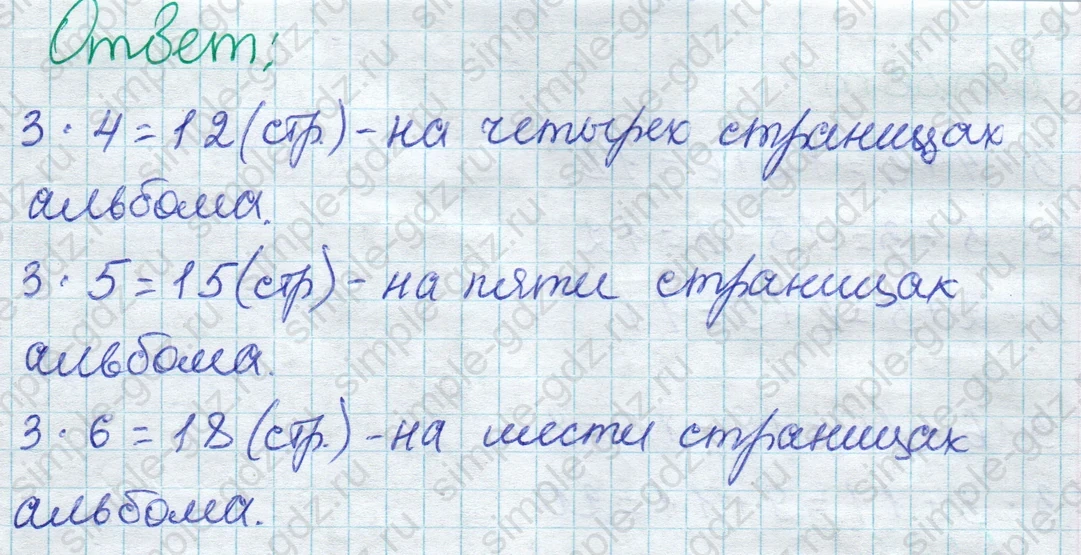 Ответ:
3 · 4 = 12 (стр.) - на четырех страницах
альбома.
3 · 5 = 15 (стр) - на пяти страницах
альбома.
3 · 6 = 18 (стр.) - на шести страницах
альбома.
simple-gdz.ru